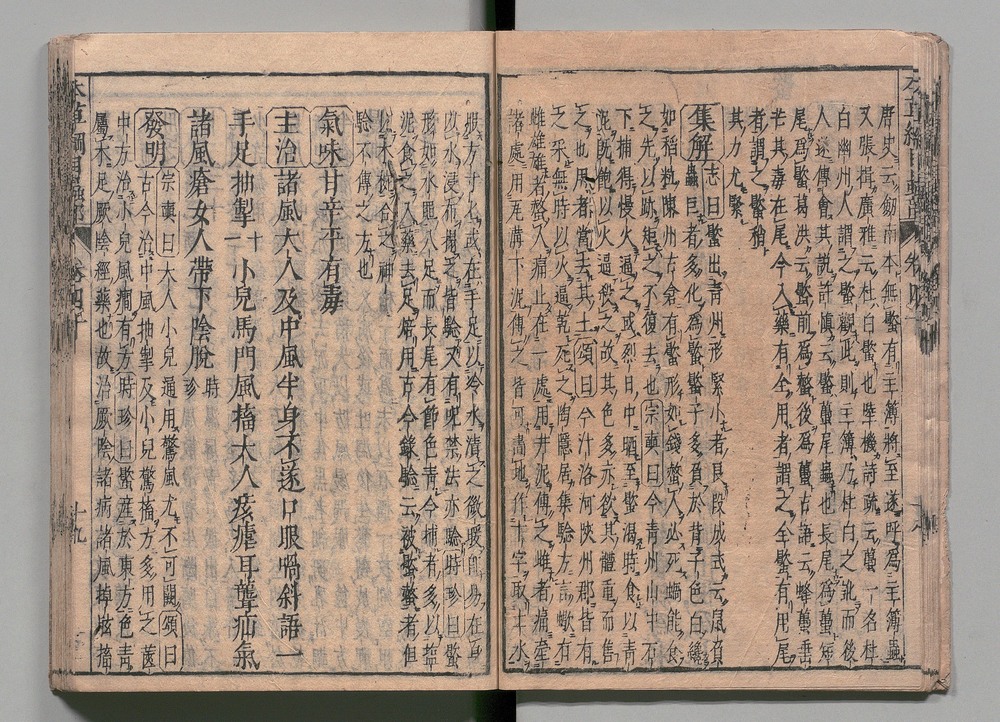 唐史云劍南本無蠍有主簿將至遂呼為主簿蟲
又張揖廣雅云杜白蠍也陸機詩疏云蠆一名杜
白幽州人謂之蠍觀此則主簿乃杜白之訛而後
人遂傅會其說許慎云蠍蠆尾蟲也長尾為蠆短
尾為蠍葛洪云蠍前為螫後為蠆古語云蜂蠆垂
芒其毒在尾今入藥有全用者謂之全蠍有用尾
者謂之蠍稍
其力尤緊
集解 志曰蠍出青州形緊小者良段成式云鼠負
蟲巨者多化為蠍蠍子多負於背子色白纔
如稻粒陳州古倉有蠍形如錢螫人必死蝸能食
之先以跡矩之不復去也宗奭曰今青州山中石
下捕得慢火逼之或烈日中晒至蠍渴時食以青
泥既飽以火逼殺之故其色多赤欲其體重而售
之也用者當去其土頌曰今汴洛河陝州郡皆有
之采無時以火逼乾死之陶隱居集驗方言蠍有
雌雄雄者螫人痛止在一處用井泥傅之雌者痛牽
諸處用瓦屋溝下泥傅之皆可畫地作十字取土水
服方寸匕或在手足以冷水漬之微暖即易在身
以水浸布搨之皆驗又有呪禁法亦驗時珍曰蠍
形如水黽八足而長尾有節色青今捕者多以鹽
泥食之入藥去足焙用古今錄驗云被蠍螫者但
以木椀合之神
驗不傳之方也
氣味甘辛平有毒
主治諸風大人及中風半身不遂口眼喎斜語
手足抽掣 小兒馬門風搐大人痎瘧耳聾疝氣
諸風瘡女人帶下陰脫時珍
發明 宗奭曰大人小兒通用驚風尤不可闕頌曰
古今治中風抽掣及小兒驚搐方多用之
中方治小兒風癎有方時珍曰蠍產於東方色青
屬木足厥陰經藥也故治厥陰諸病諸風掉眩搐